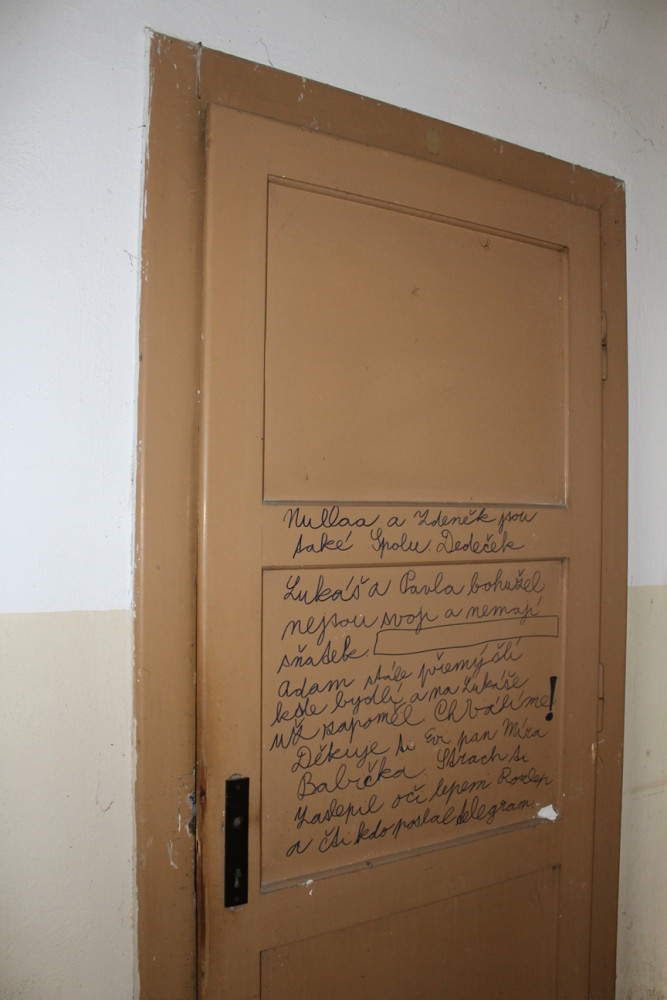 Nullaa a Zdeněk jsou
také Spolu. Dedeček
Lukáš a Pavla bohužel
nejsou svoji a nemají
sňatek.
Adam stále přemýšlí
kde bydlí a na Lukáše
už zapoměl Chválíme!
Děkuje ti Evi pan Míra
Babička. Strach ti
Zaslepil oči lepem Rozlep
a čti kdo poslal telegram